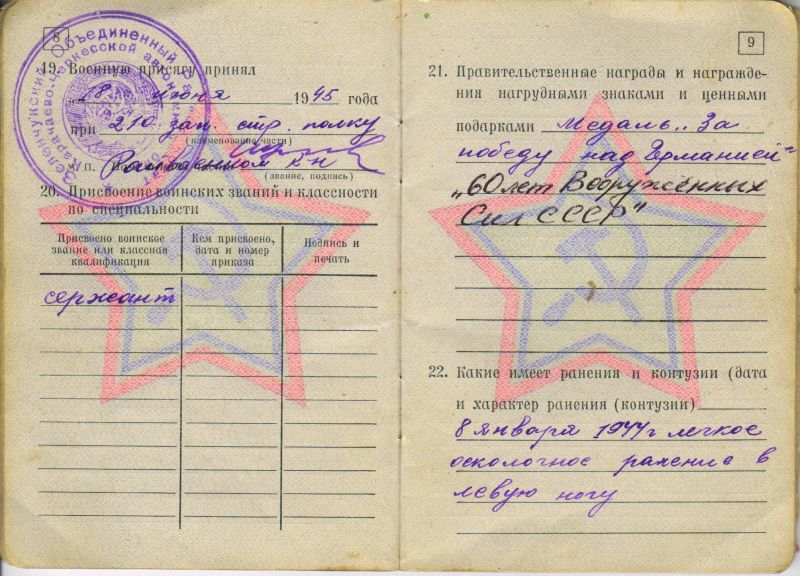 8
19. Военную присягу принял
"18" июня 1945 года
при 210 зап. стр. полку
(наименование части)
М/П.
(звание, подпись)
20. Присвоение воинских званий и классности
по специальности
Присвоено воинское звание или классная квалификация
Кем присвоено, дата и номер приказа
Подпись и печать
сержант
9
21. Правительственные награды и награжде-
ния нагрудными знаками и ценными
подарками Медаль „За
победу над Германией"
„60 лет Вооружённых
Сил СССР"
22. Какие имеет ранения и контузии (дата
и характер ранения (контузии)
8 января 1944 г легкое
осколочное ранение в
левую ногу